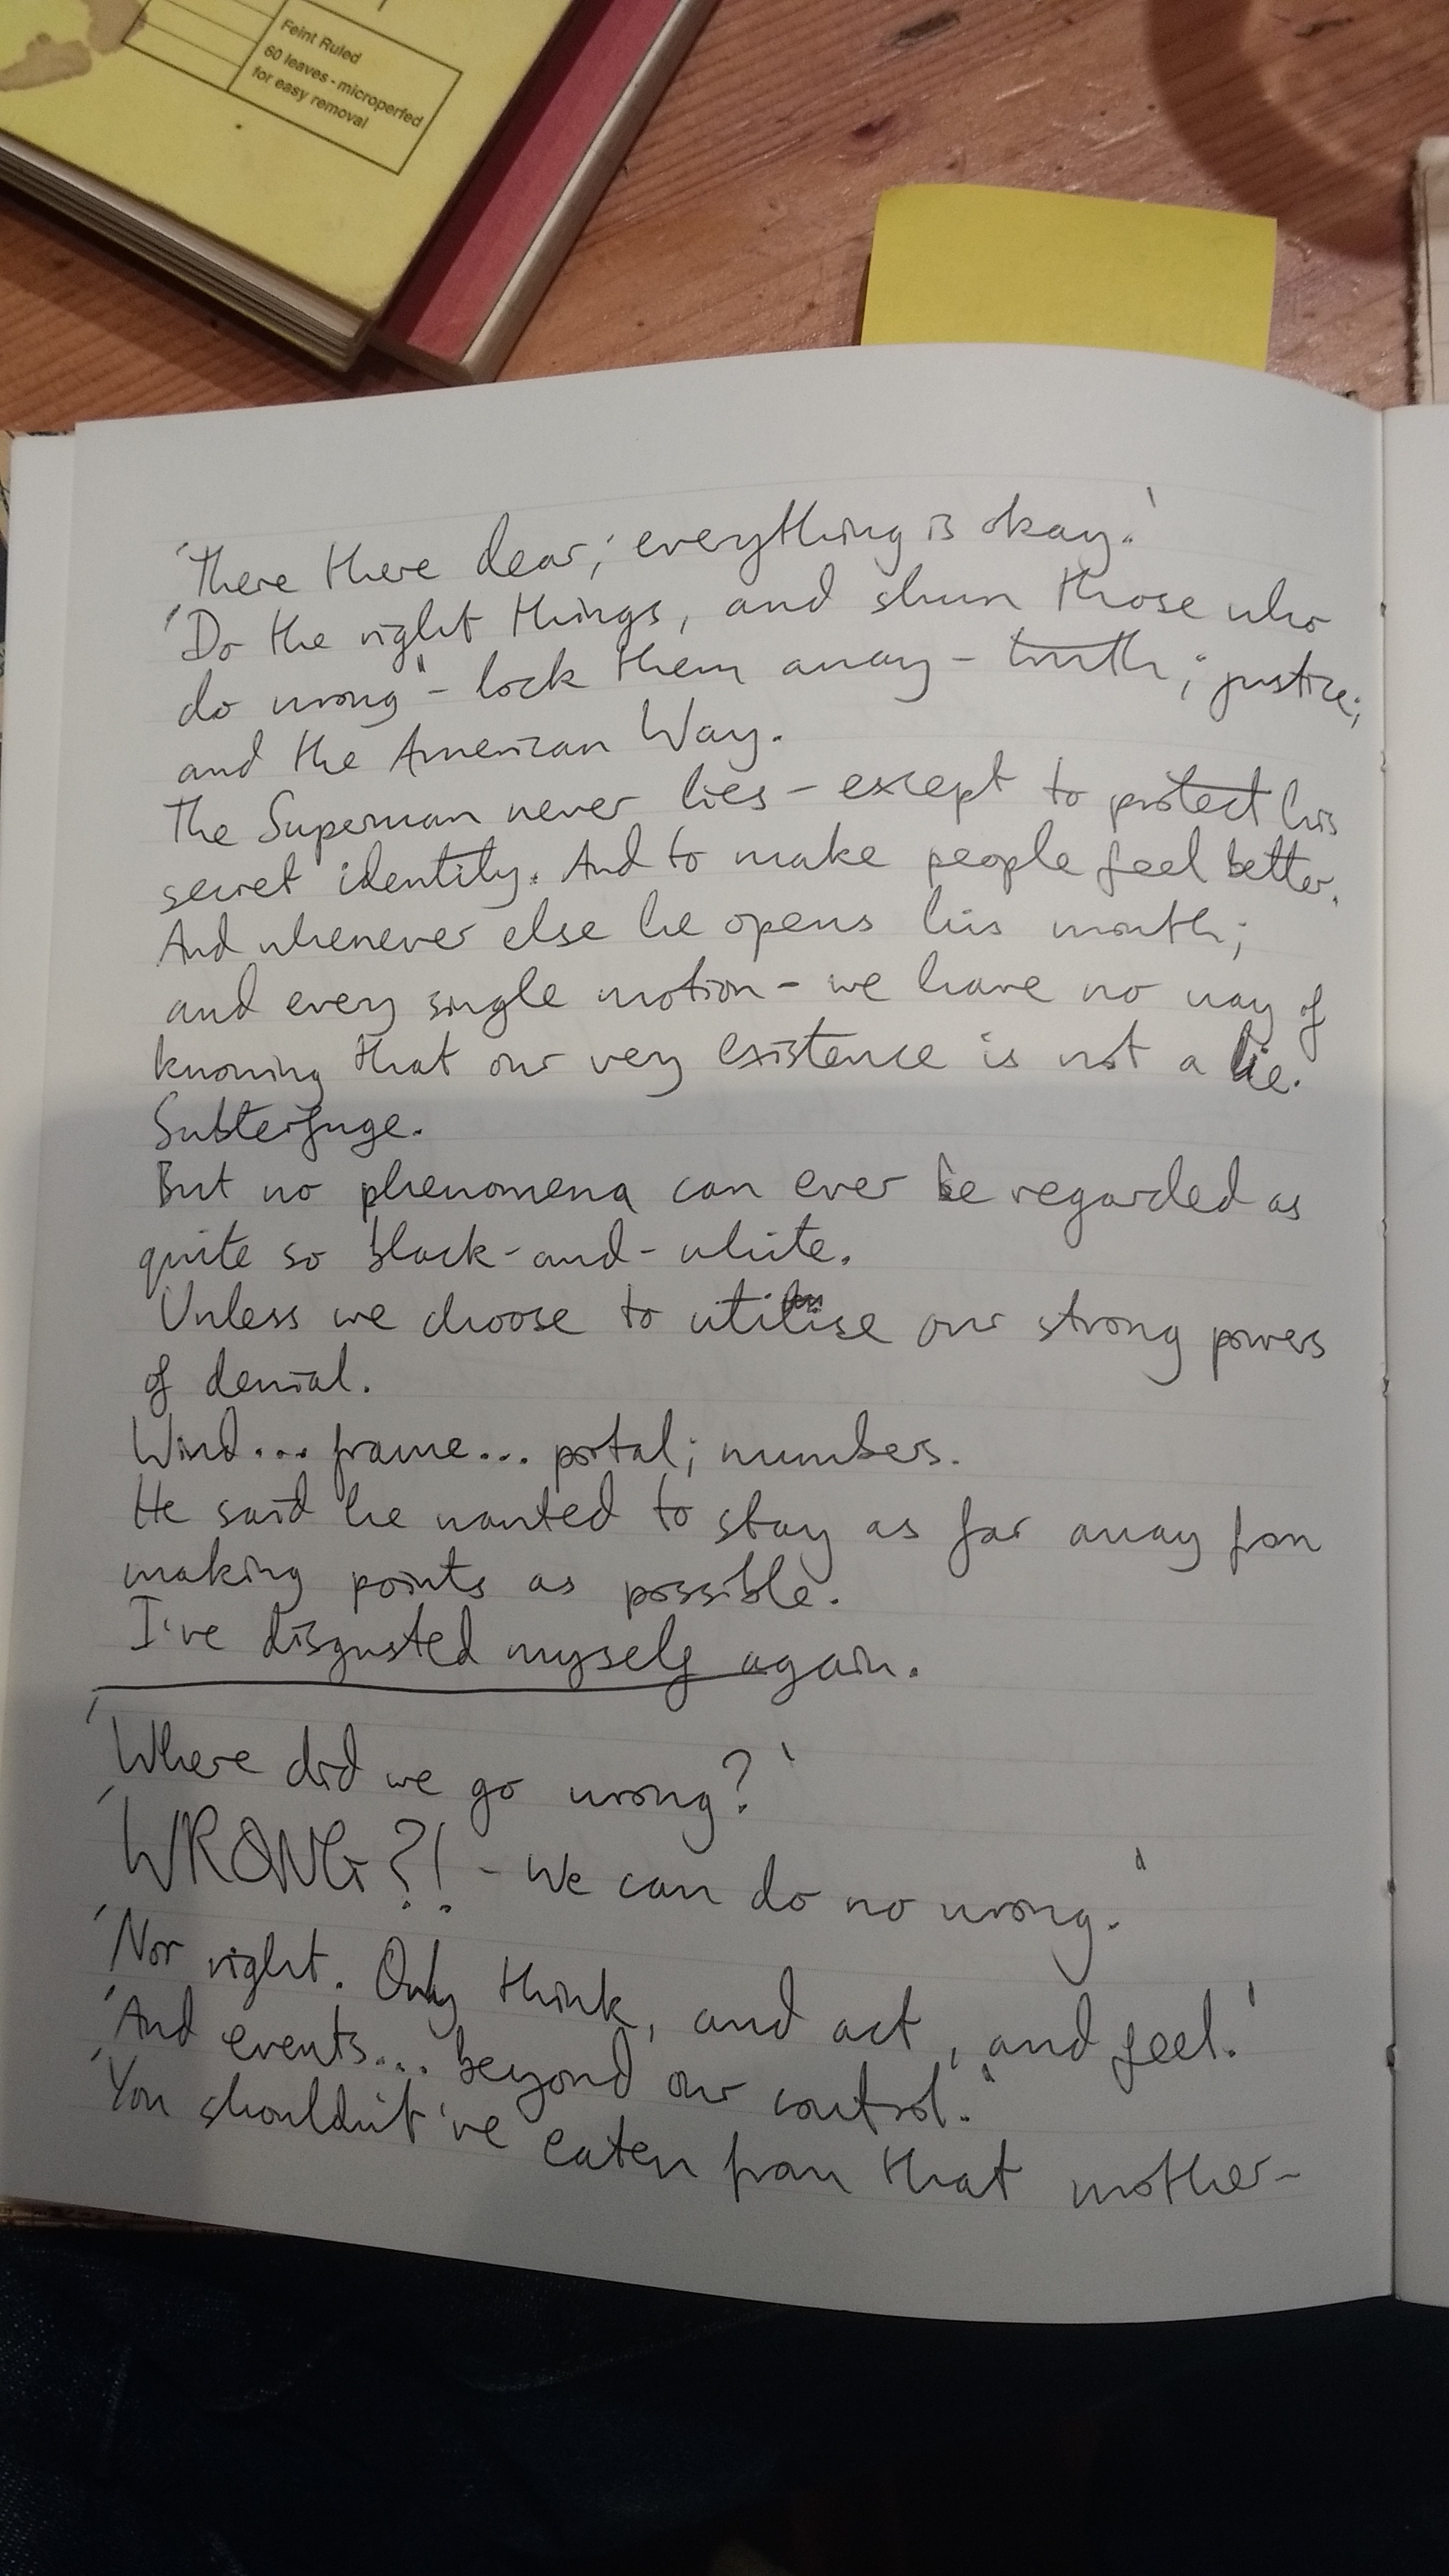 Feint Ruled
60 leaves - microperfed
for easy removal
'There there dear; everything is okay.'
'Do the right things, and shun those who
do wrong' - lock them away - truth; justice;
and the American Way.
The Superman never lies - except to protect his
secret identity. And to make people feel better.
And whenever else he opens his mouth;
and every single motion - we have no way of
knowing that our very existence is not a lie.
Subterfuge.
But no phenomena can ever be regarded as
quite so black-and-white.
Unless we choose to utilise our strong powers
of denial.
Wind... frame... portal; numbers.
He said he wanted to stay as far away from
making points as possible.
I've disgusted myself again.
'Where did we go wrong?'
'WRONG?! - We can do no wrong.'
'Nor right. Only think, and act, and feel.'
'And events... beyond our control.'
'You shouldn't've eaten from that mother-